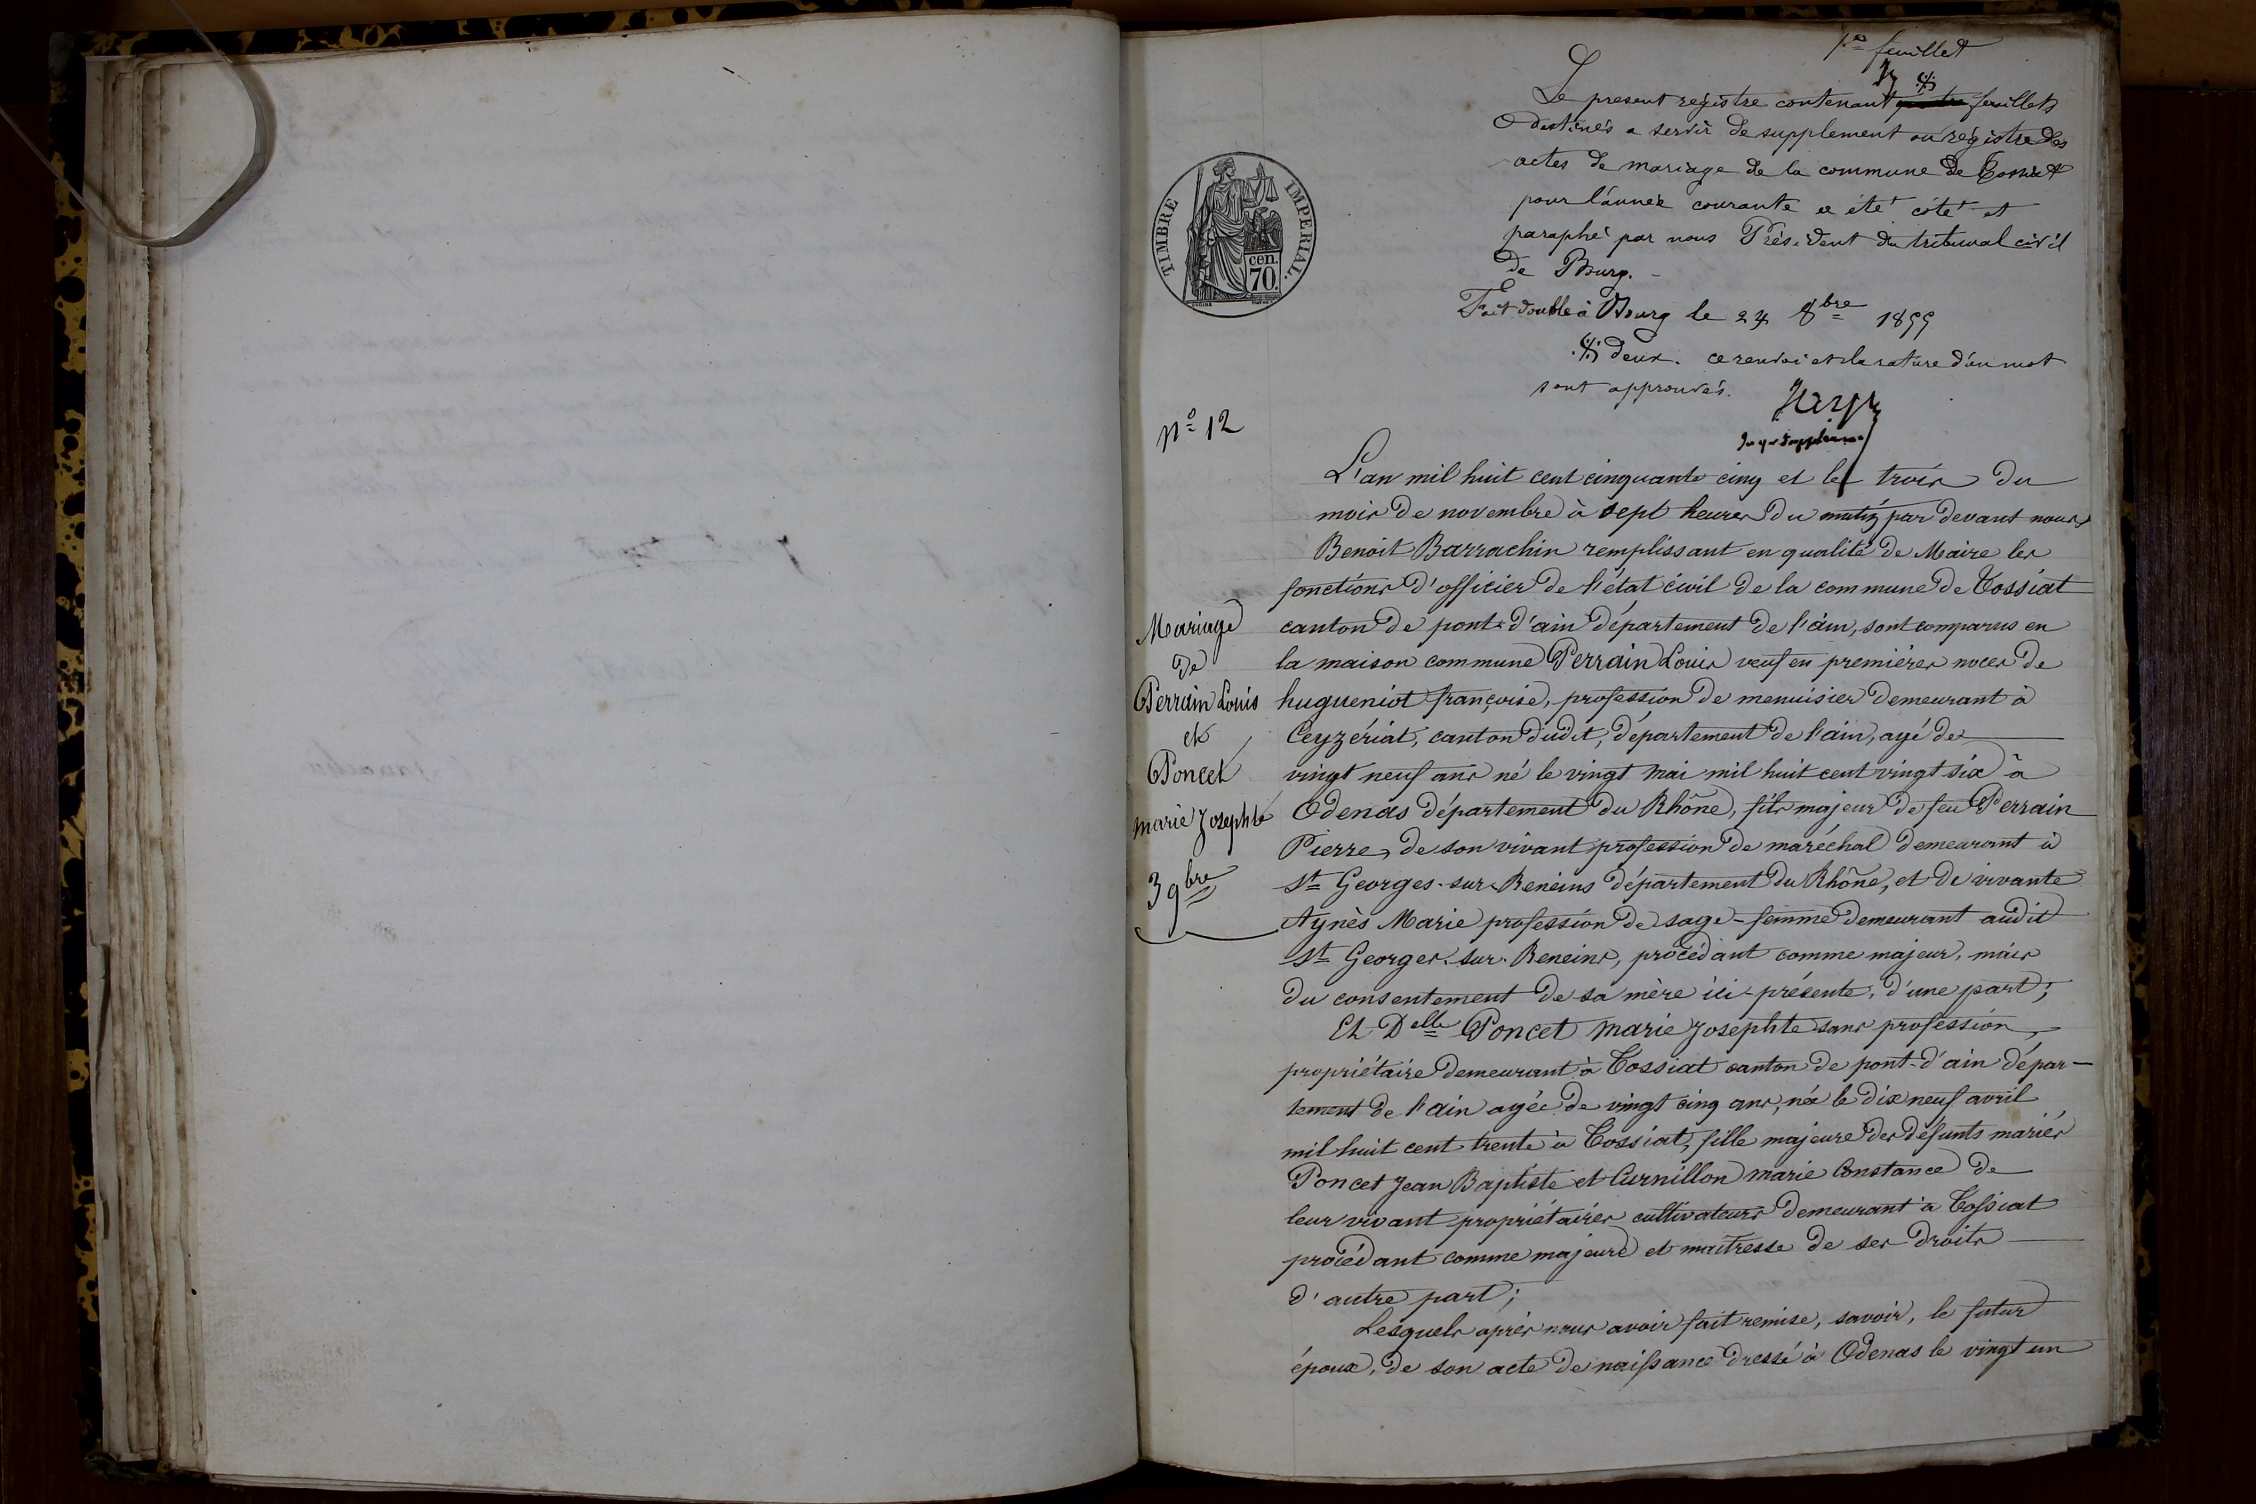 1er feuillet
Le present registre contenant quatre feuillets
destinés a servir de supplement au registre des
actes de mariage de la commune de Tossiat
pour l'année courante a été coté et
paraphé par nous Président du tribunal civil
de Bourg.
Fait double à Bourg le 24 8bre 1855
deux. ce renvoi et la rature d'un mot
sont approuvés.
Juge suppléant
TIMBRE IMPERIAL.
cen.
70.
No 12
Mariage
de
Perrain Louis
et
Poncet
marie Josephte
3 9bre
L'an mil huit cent cinquante cinq et le trois du
mois de novembre à sept heures du matin par devant nous
Benoit Barrachin remplissant en qualité de Maire les
fonctions d'officier de l'état civil de la commune de Tossiat
canton de pont-d'ain département de l'ain, sont comparus en
la maison commune Perrain Louis veuf en premières noces de
hugueniot françoise, profession de menuisier demeurant à
Ceyzériat, canton dudit, département de l'ain, agé de
vingt neuf ans né le vingt mai mil huit cent vingt six à
Odenas département du Rhône, fils majeur de feu Perrain
Pierre, de son vivant profession de maréchal demeurant à
St Georges-sur-Reneins département du Rhône, et de vivante
Agnès Marie profession de sage-femme demeurant audit
St Georges-sur-Reneins, procédant comme majeur, mais
du consentement de sa mère ici-présente, d'une part;
Et Delle Poncet marie Josephte sans profession,
propriétaire demeurant à Tossiat canton de pont-d'ain dépar-
tement de l'ain agée de vingt cinq ans, née le dix neuf avril
mil huit cent trente à Tossiat, fille majeure des défunts mariés
Poncet Jean Baptiste et Curnillon marie Constance de
leur vivant propriétaires cultivateurs demeurant à Tossiat
procédant comme majeure et maitresse de ses droits
d'autre part;
Lesquels après nous avoir fait remise, savoir, le futur
époux, de son acte de naissance dressé à Odenas le vingt un